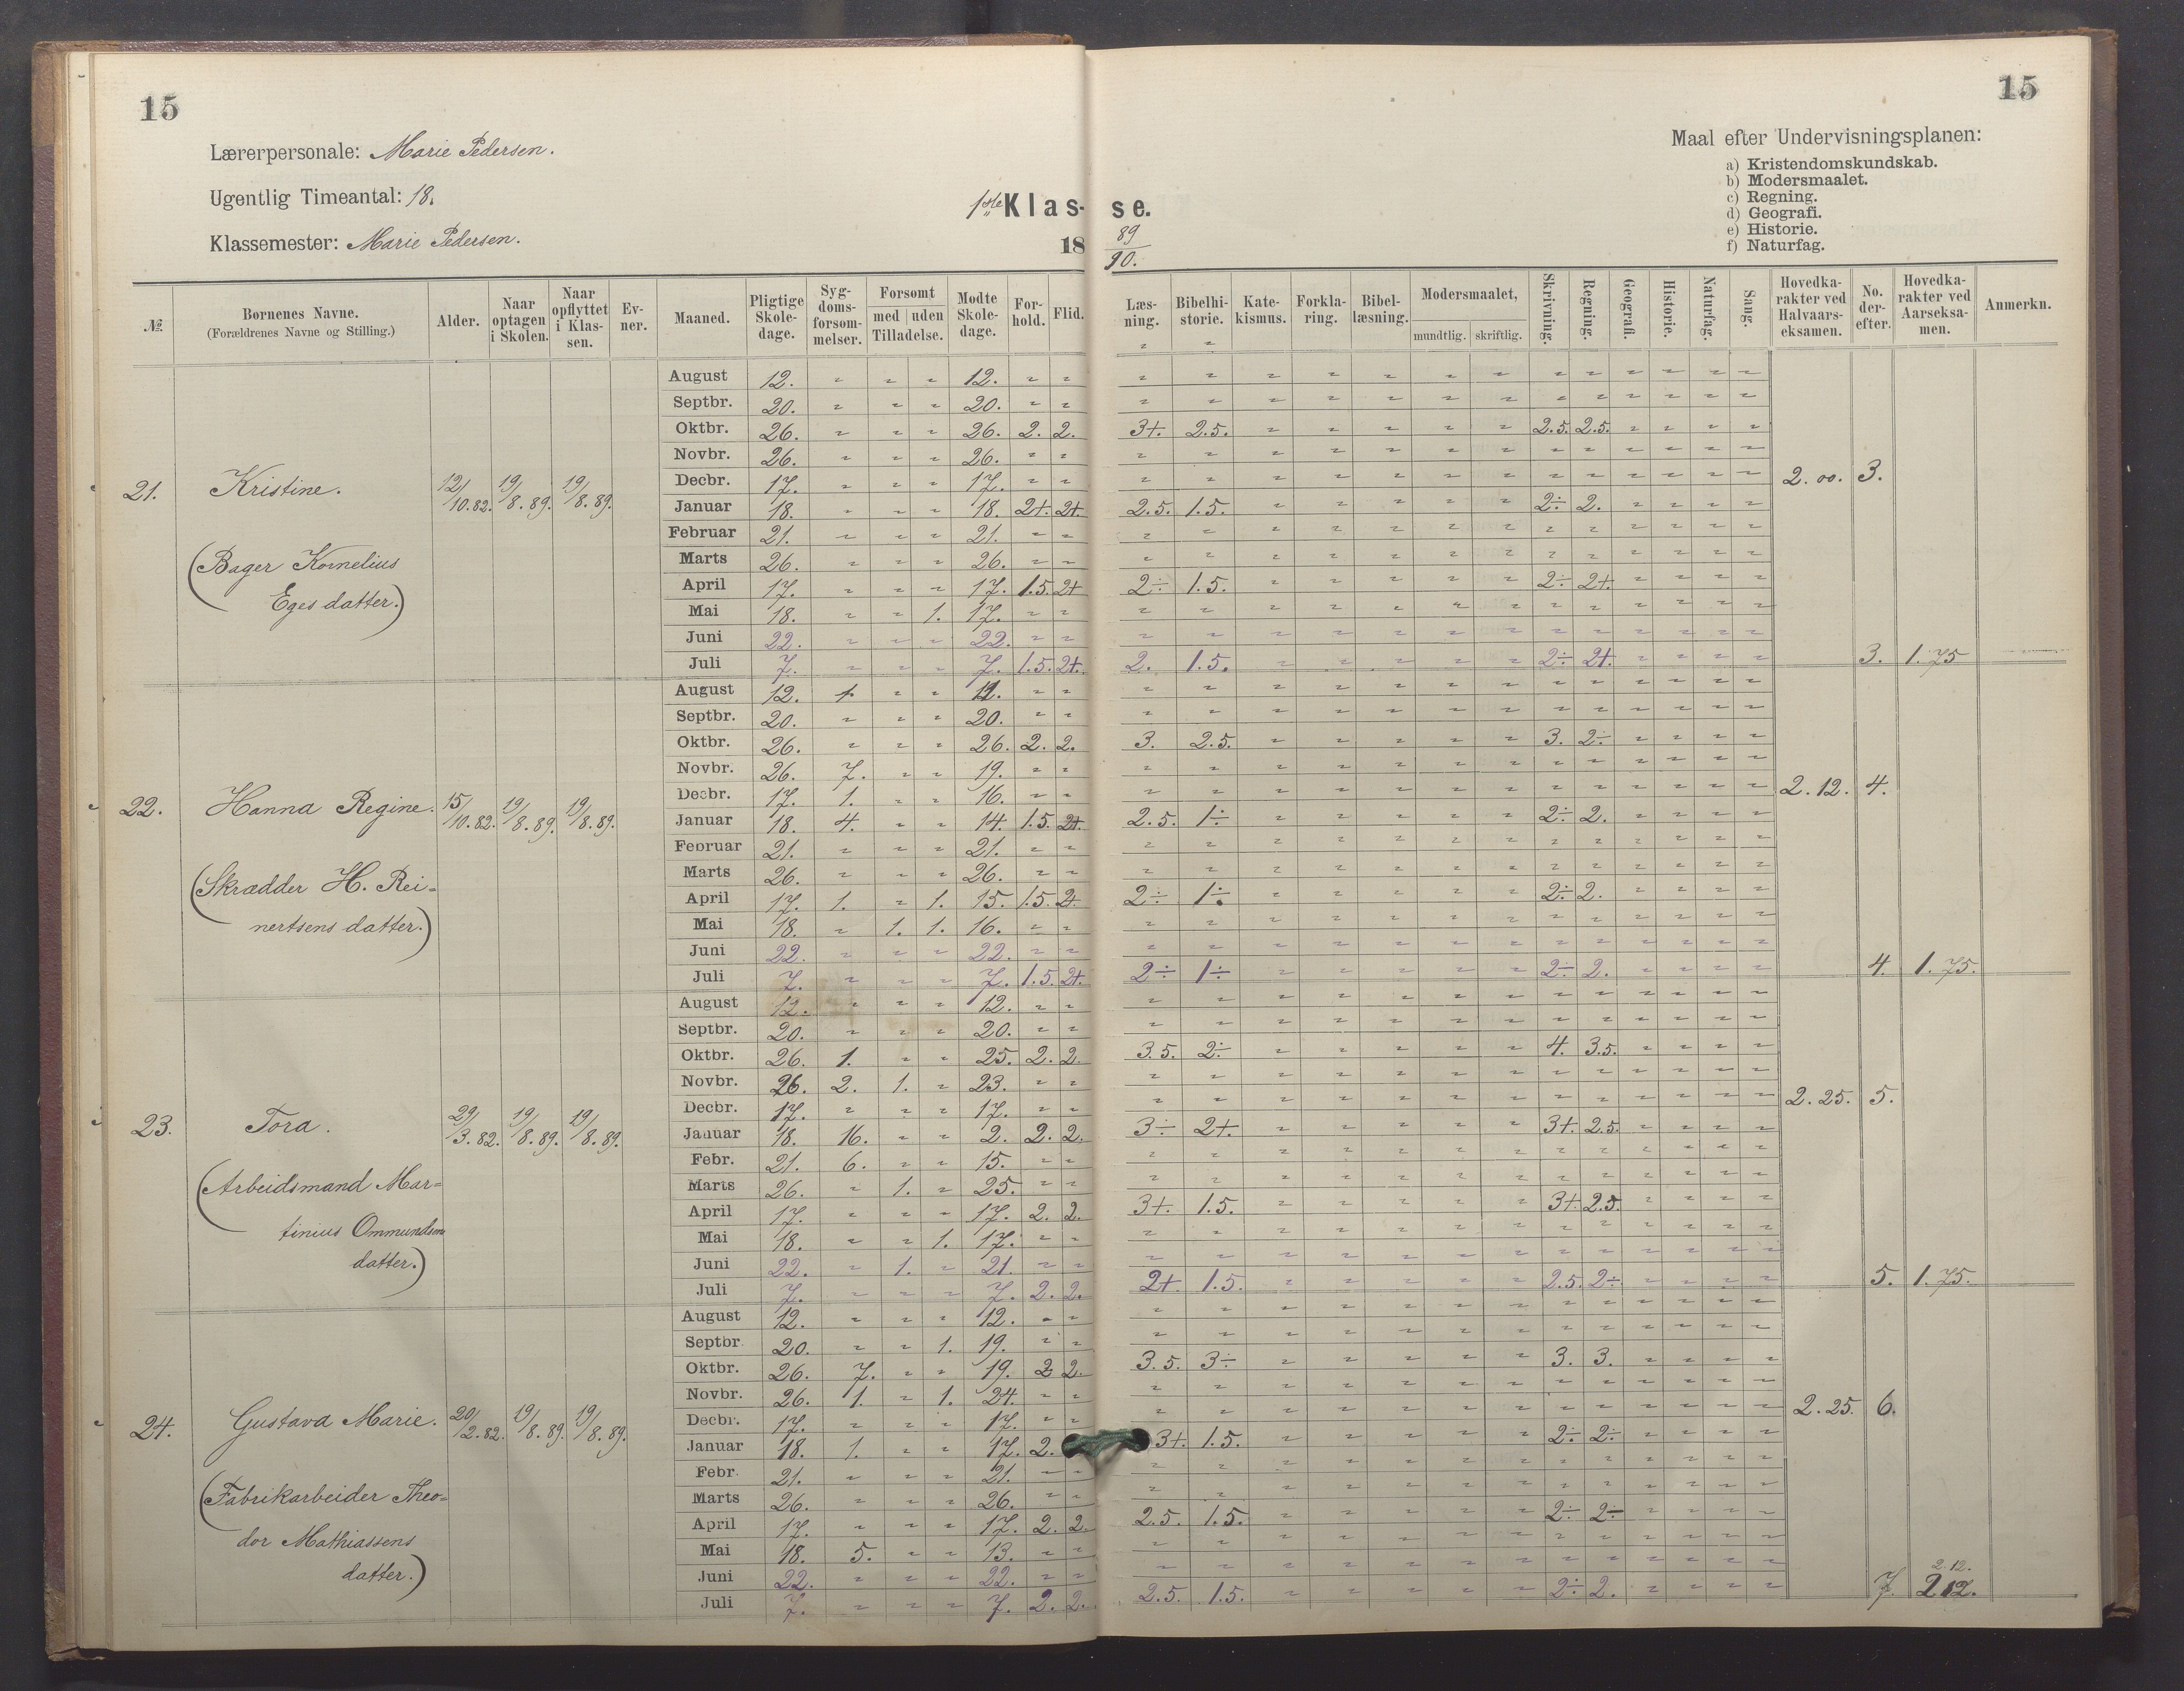 15
15
Lærerpersonale: Marie Pedersen.
Ugentlig Timeantal: 18.
Klassemester: Marie Pedersen.
1ste Klas- se.
18 89/90.
Maal efter Undervisningsplanen:
a) Kristendomskundskab.
b) Modersmaalet.
c) Regning.
d) Geografi.
e) Historie.
f) Naturfag.
№. Børnenes Navne. (Forældrenes Navne og Stilling.) Alder. Naar optagen i Skolen. Naar opflyttet i Klassen. Evner. Maaned. Pligtige Skoledage. Sygdomsforsømmelser. Forsømt med uden Tilladelse. Mødte Skoledage. Forhold. Flid. Læsning. Bibelhistorie. Katekismus. Forklaring. Bibellæsning. Modersmaalet, mundtlig. skriftlig. Skrivning. Regning. Geografi. Historie. Naturfag. Sang. Hovedkarakter ved Halvaarseksamen. No. derefter. Hovedkarakter ved Aarseksamen. Anmerkn.
21. Kristine. 12/10.82. 19/8.89. 19/8.89.
(Bager Kornelius
Eges datter.)
August 12. " " " 12. " "
Septbr. 20. " " " 20. " "
Oktbr. 26. " " " 26. 2. 2. 3+. 2.5. 2.5. 2.5.
Novbr. 26. " " " 26. " "
Decbr. 17. " " " 17. " " 2.00. 3.
Januar 18. " " " 18. 2+. 2+. 2.5. 1.5. 2÷ 2.
Februar 21. " " " 21. " "
Marts 26. " " " 26. " "
April 17. " " " 17. 1.5. 2+ 2÷ 1.5. 2÷ 2+.
Mai 18. " " 1. 17. " "
Juni 22. " " " 22. " "
Juli 7. " " " 7. 1.5. 2+. 2. 1.5. 2÷ 2+. 3. 1.75
22. Hanna Regine. 15/10.82. 19/8.89. 19/8.89.
(Skrædder H. Rei=
nertsens datter.)
August 12. 1. " " 11. " "
Septbr. 20. " " " 20. " "
Oktbr. 26. " " " 26. 2. 2. 3. 2.5. 3. 2÷
Novbr. 26. 7. " " 19. " "
Decbr. 17. 1. " " 16. " " 2.12. 4.
Januar 18. 4. " " 14. 1.5. 2+. 2.5. 1÷ 2÷ 2.
Februar 21. " " " 21. " "
Marts 26. " " " 26. " "
April 17. 1. " 1. 15. 1.5. 2+. 2÷ 1÷ 2÷ 2.
Mai 18. " 1. 1. 16. " "
Juni 22. " " " 22. " "
Juli 7. " " " 7. 1.5. 2+. 2÷ 1÷ 2÷ 2. 4. 1.75.
23. Tora. 29/3.82. 19/8.89. 19/8.89.
(Arbeidsmand Mar=
tinius Ommundsen
datter.)
August 12. " " " 12. " "
Septbr. 20. " " " 20. " "
Oktbr. 26. 1. " " 25. 2. 2. 3.5. 2÷ 4. 3.5.
Novbr. 26. 2. 1. " 23. " "
Decbr. 17. " " " 17. " " 2.25. 5.
Januar 18. 16. " " 2. 2. 2. 3÷ 2+. 3+. 2.5.
Febr. 21. 6. " " 15. " "
Marts 26. " 1. " 25. " "
April 17. " " " 17. 2. 2. 3+. 1.5. 3+. 2.5.
Mai 18. " " 1. 17. " "
Juni 22. " 1. " 21. " "
Juli 7. " " " 7. 2. 2. 2+. 1.5. 2.5. 2÷ 5. 1.75.
24. Gustava Marie. 20/2.82. 19/8.89. 19/8.89.
(Fabrikarbeider Theo=
dor Mathiassens
datter.)
August 12. " " " 12. " "
Septbr. 20. " " 1. 19. " "
Oktbr. 26. 7. " " 19. 2 2. 3.5. 3÷ 3. 3.
Novbr. 26. 1. " 1. 24. " "
Decbr. 17. " " " 17. " " 2.25. 6.
Januar 18. 1. " " 17. 2. 3+. 1.5. 2÷ 2÷
Febr. 21. " " " 21. " "
Marts 26. " " " 26. " "
April 17. " " " 17. 2. 2. 2.5. 1.5. 2÷ 2÷
Mai 18. 5. " " 13. " "
Juni 22. " " " 22. " " 2.12.
Juli 7. " " " 7. 2. 2. 2.5. 1.5. 2÷ 2. 7. 2.12.